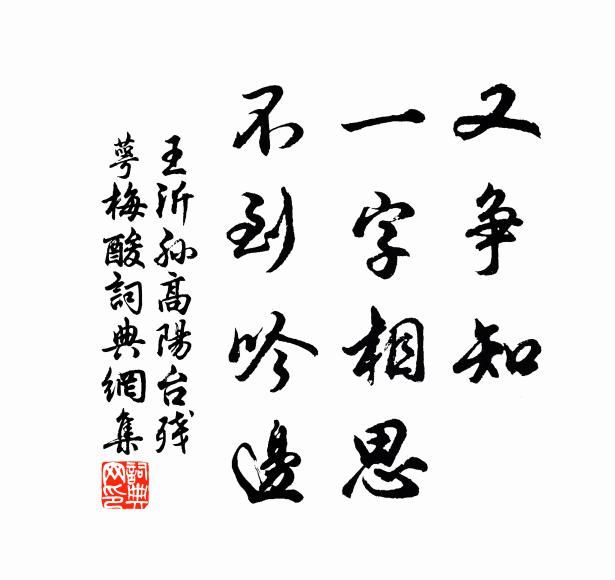 又争知
一字相思
不到吟邊
王沂孙高陽台残
萼梅酸詞典網集
詞典网印